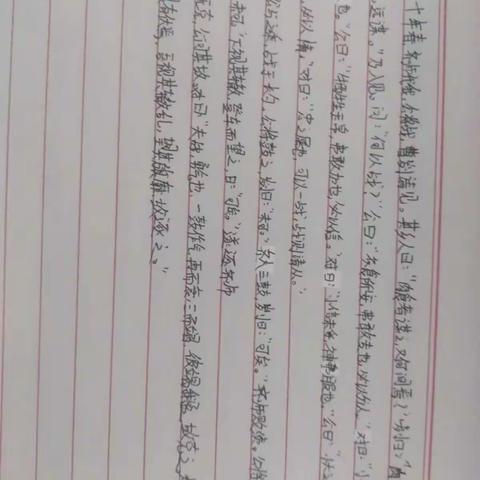 十年春,齐师伐我,公将战,曹刿请见。其乡人曰:"肉食者谋之,又何间焉?"刿曰:"肉
远谋。"乃入见。问:"何以战?"公曰:"衣食所安,弗敢专也,必以分人。"对曰:"小
也。"公曰:"牺牲玉帛,弗敢加也,必以信。"对曰:"小信未孚,神弗服也。"公曰:"小大
必以情。"对曰:"忠之属也,可以一战,战则请从。"
公与之乘,战于长勺。公将鼓之,刿曰:"未可。"齐人三鼓,刿曰:"可矣。"齐师败绩。公将
未可。"下视其辙,登车而望之,曰:"可矣。"遂逐齐师
既克,公问其故。对曰:"夫战,勇气也,一鼓作气,再而衰,三而竭。彼竭我盈,故克之。
有伏焉,吾视其辙乱,望其旗靡,故逐之。"